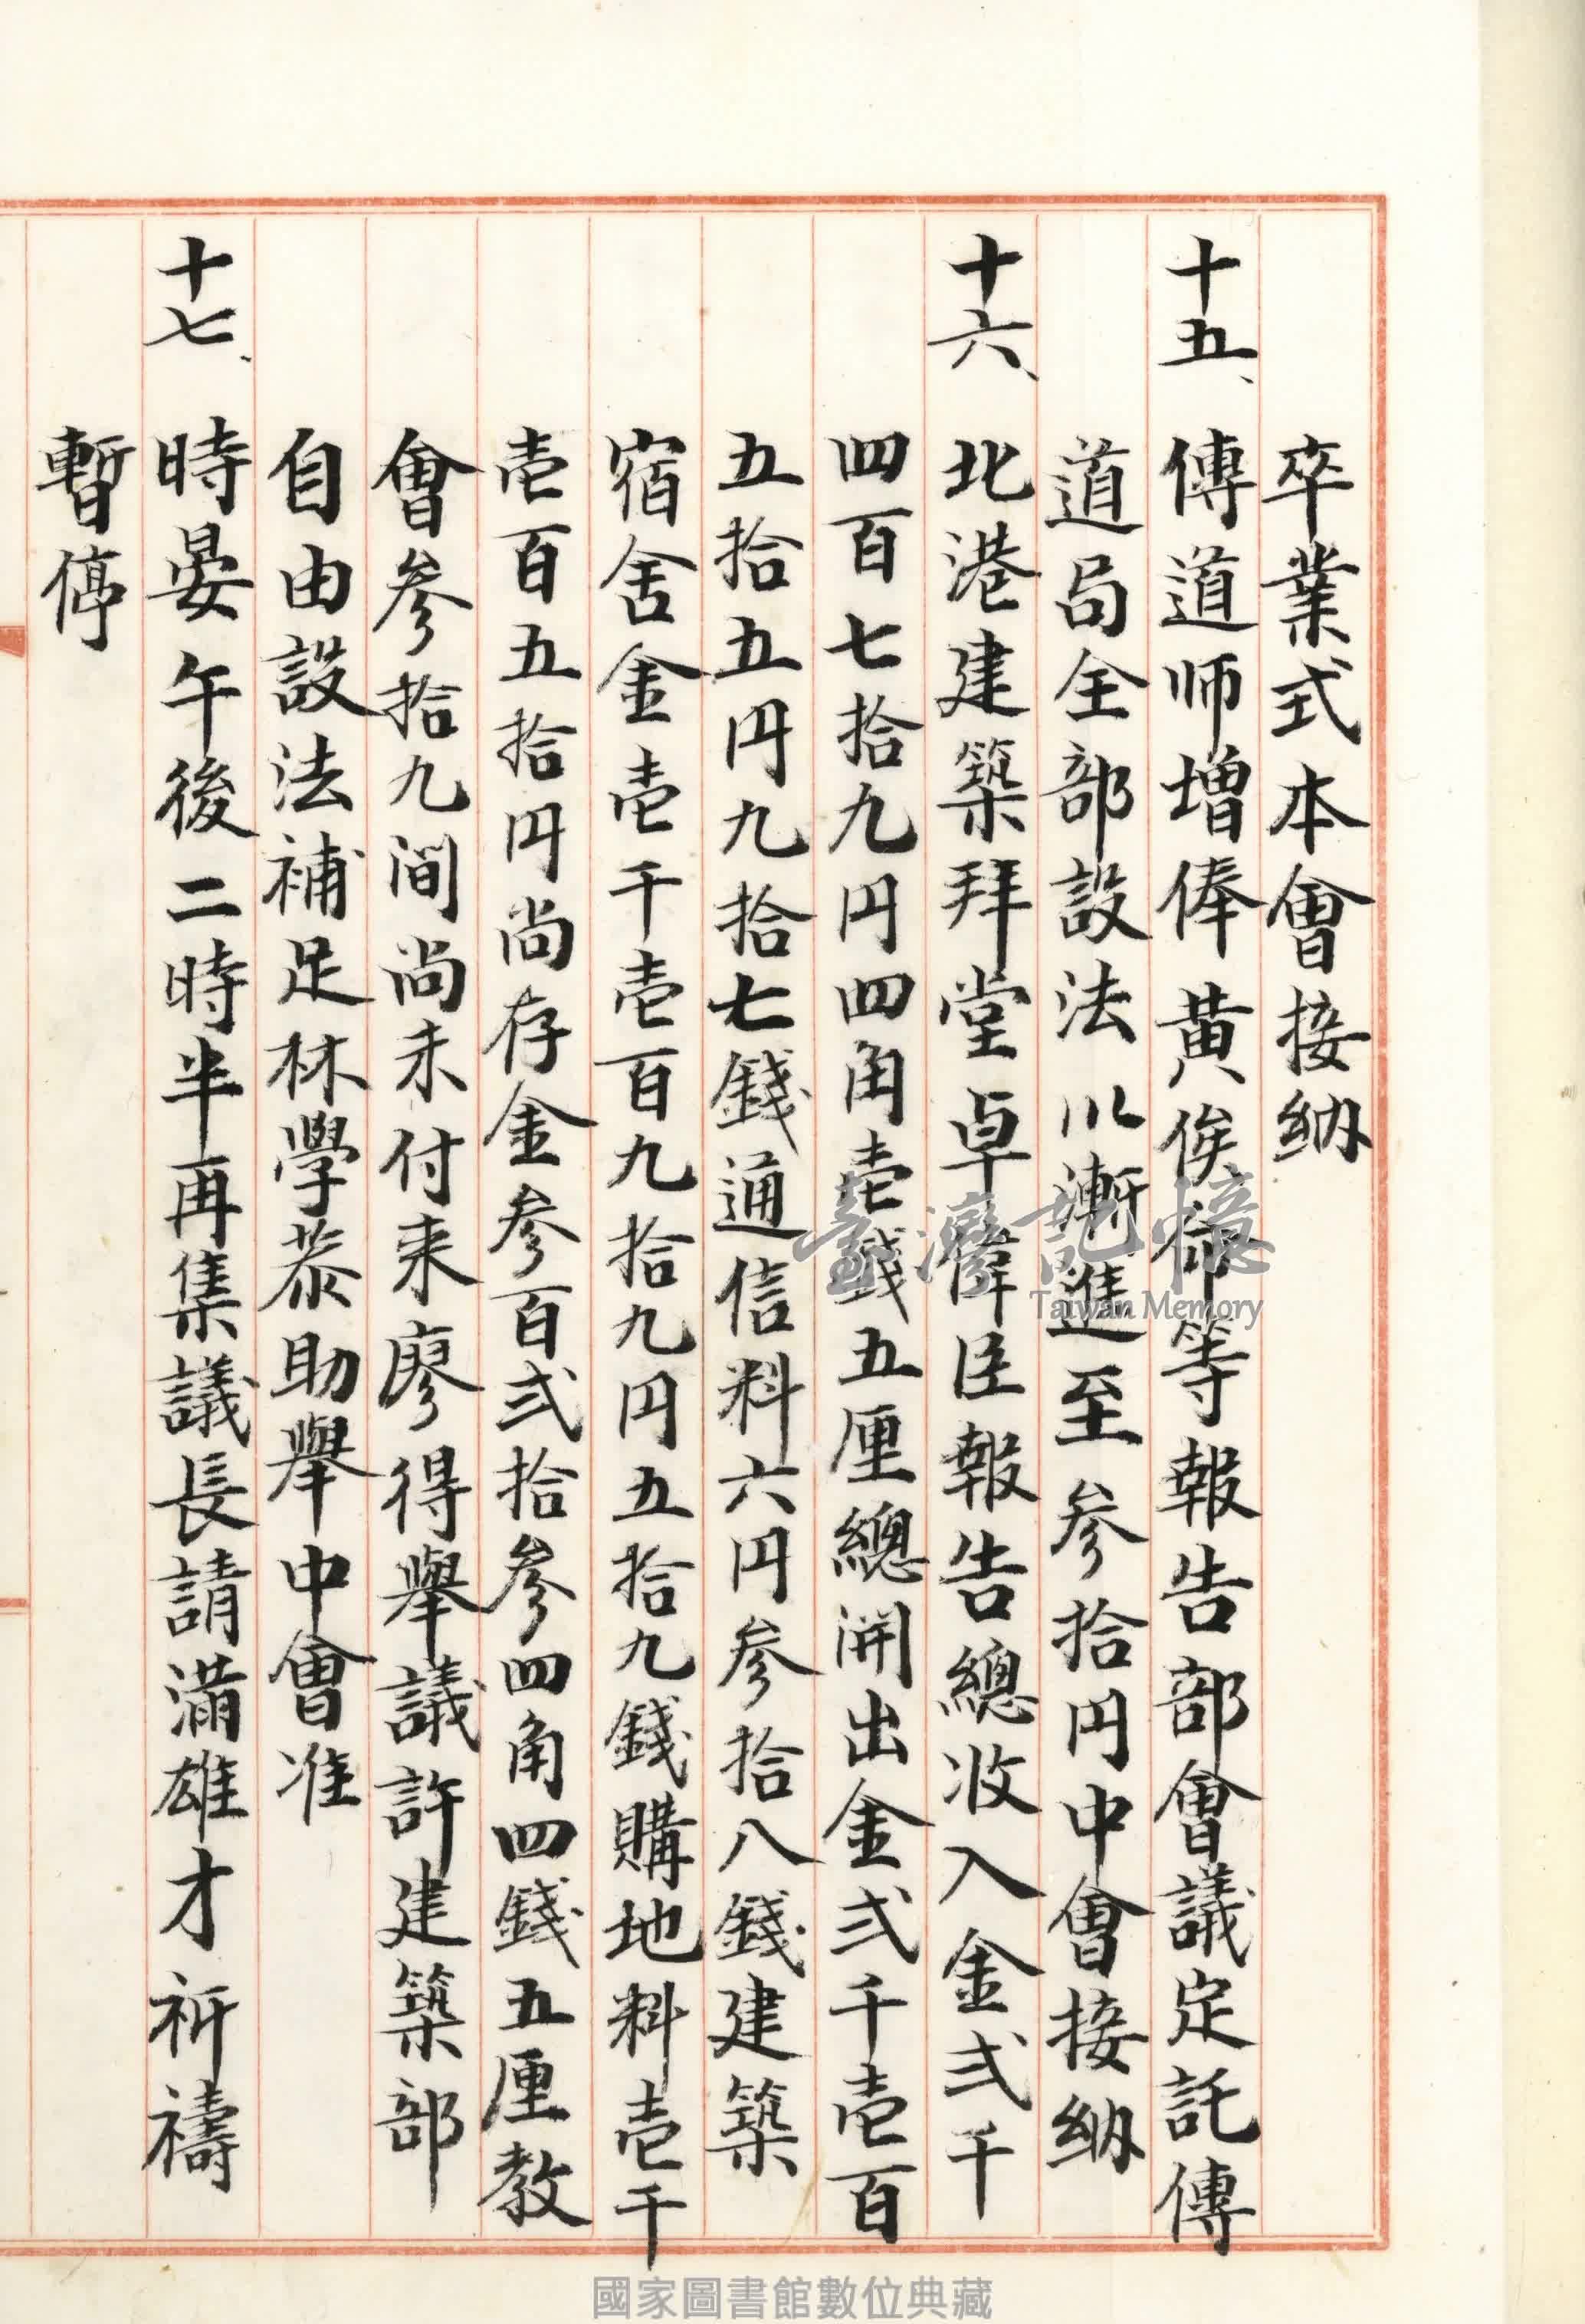 卒業式本會接納
十五、傳道师增俸黃俟命等報告部會議定託傳
道局全部設法以漸進至参拾円中會接納
十六、北港建築拜堂卓偉臣報告總收入金弍千
四百七拾九円四角壱錢五厘總開出金弍千壱百
五拾五円九拾七錢通信料六円参拾八錢建築
宿舍金壱千壱百九拾九円五拾九錢購地料壱千
壱百五拾円尚存金参百弍拾參四角四錢五厘教
會参拾九间尚未付来廖得舉議許建築部
自由設法補足林學恭助舉中會准
十七、時晏午後二時半再集議長請滿雄才祈禱
暫停
臺灣記憶
Taiwan Memory
國家圖書館數位典藏